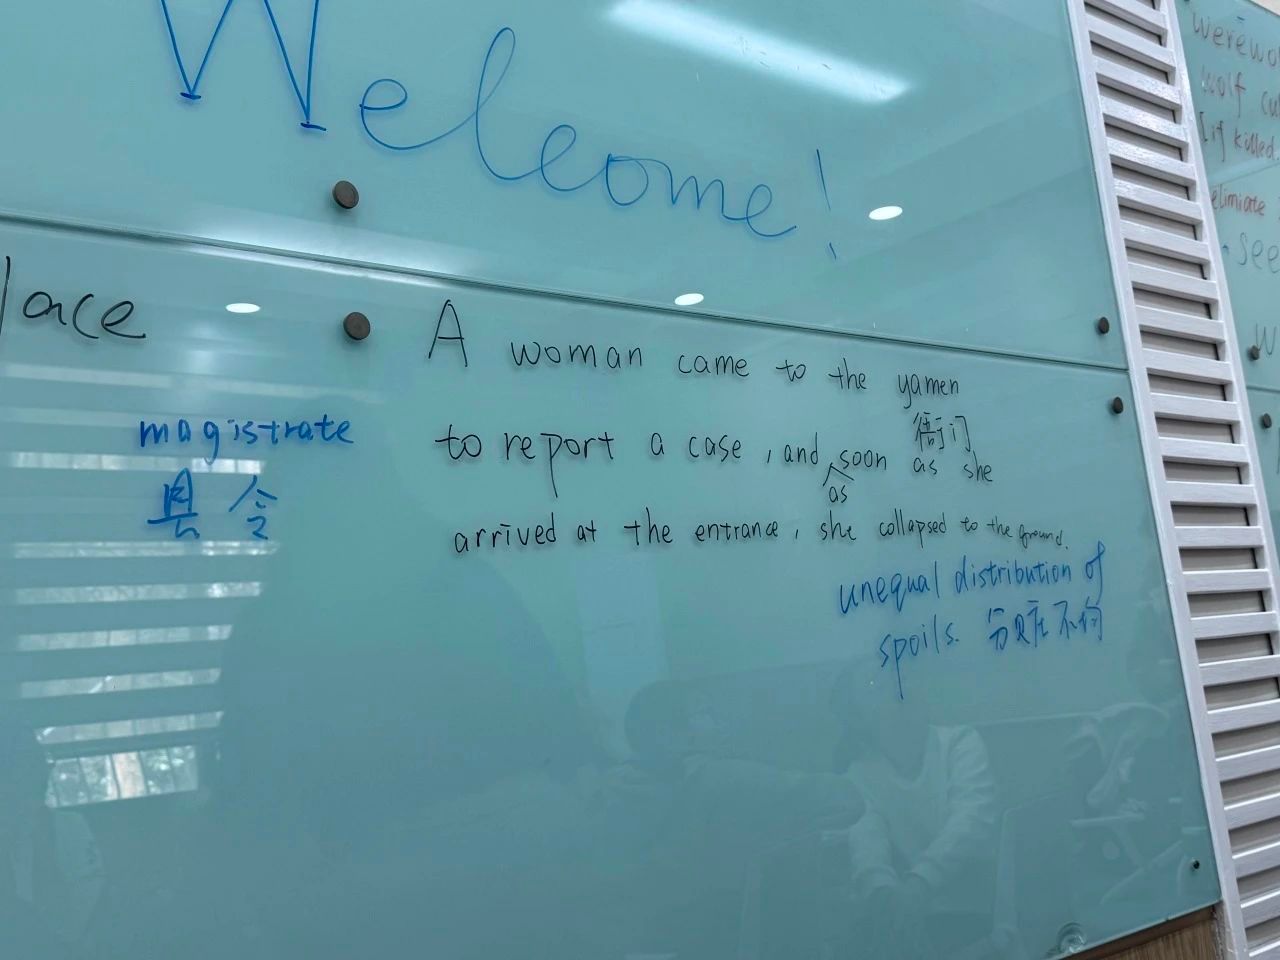 Welcome!
lace
A woman came to the yamen
衙门
to report a case, and soon as she
as
arrived at the entrance, she collapsed to the ground.
magistrate
县令
unequal distribution of
spoils. 分赃不均
wolf
[if killed
elimiate
see